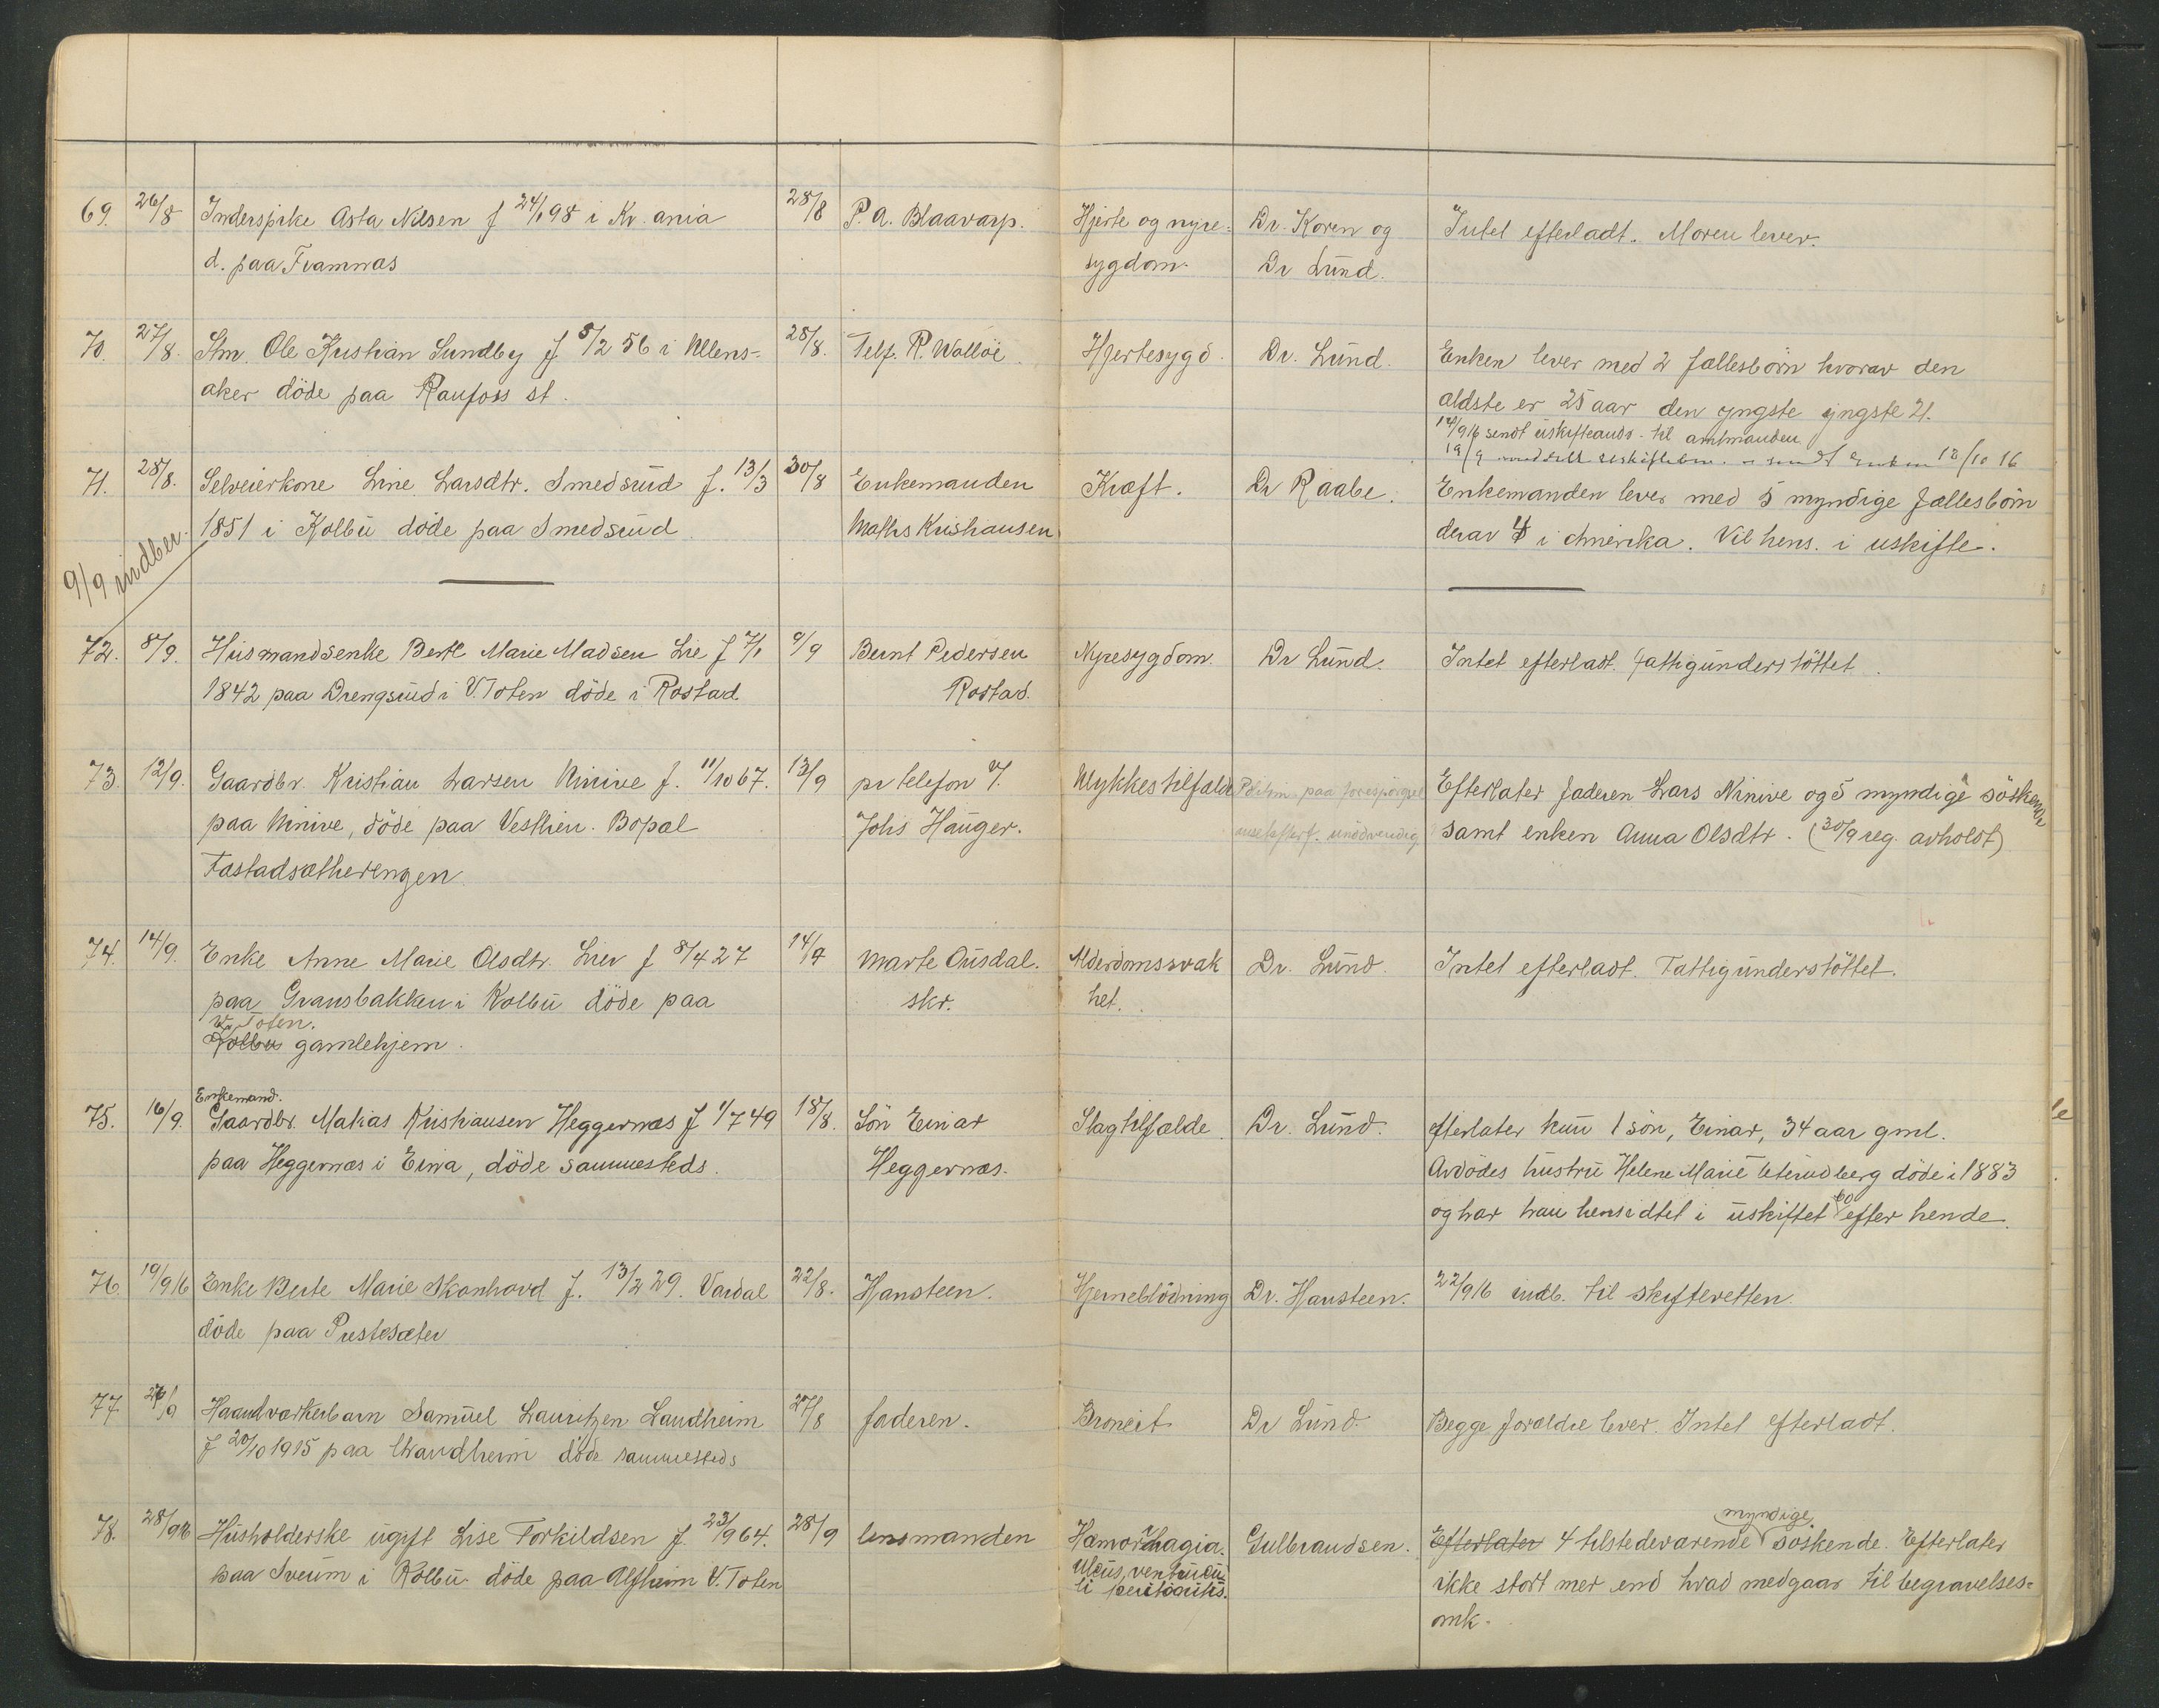 69. 26/8 Inderspike Asta Nilsen f 24/1 98 i Kr. ania 28/8 P. A. Blaavarp. Hjerte og nyre- Dr. Koren og Intet efterladt. Moren lever.
d. paa Framnæs sygdom. Dr Lund.
70. 27/8. Stm. Ole Kristian Sundby f. 5/2 56 i Ullens- 28/8. Telf. R. Walløe. Hjertesygd. Dr. Lund. Enken lever med 2 fællesbörn hvorav den
aker döde paa Raufoss st. ældste er 25 aar den yngste yngste 21.
14/9 16 sendt uskifteands. til amtmanden
19/9 18/10 16
71. 28/8. Selveierkone Line Larsdtr. Smedsrud f. 13/3 30/8 Enkemanden Kræft. Dr Raabe. Enkemanden lever med 5 myndige fællesbörn
1851 i Kolbu döde paa Smedsrud. Maths Kristiansen derav 4 i Amerika. Vil hens. i uskifte.
9/9 indber.
72. 8/9. Husmandsenke Berte Marie Madsen Lie f 7/1 9/9 Bernt Pedersen Nyresygdom. Dr Lund. Intet efterladt. Fattigunderstöttet.
1842 paa Drengsrud i V. Toten döde i Rostad. Rostad.
73. 12/9. Gaardbr. Kristian Larsen Ninive f. 11/10 67. 13/9 pr telefon v. Ulykkestilfælde paa forespörgsel Efterlater faderen Lars Ninive og 5 myndige söskende
paa Ninive, döde paa Vestlien. Bopæl Johs Hauger. unödvendig samt enken Anna Olsdtr. (30/9 reg. avholdt)
Fastadsætherengen
74. 14/9. Enke Anne Marie Olsdtr. Lier f 8/4 27 14/9 Marte Ousdal. Alderdomssvak Dr. Lund. Intet efterladt. Fattigunderstöttet.
paa Gransbakken i Kolbu döde paa skr. het.
V. Toten.
Kolbu gamlehjem.
Enkemand.
75. 16/9. Gaardbr. Matias Kristiansen Heggernæs f 1/7 49 18/8. Sön Einar Slagtilfælde. Dr. Lund. efterlater kun 1 sön, Einar, 34 aar gml.
paa Heggernæs i Eina, döde sammesteds. Heggernæs. Avdödes hustru Helene Marie döde i 1883
og har han hensidtet i uskiftet bo efter hende.
76. 19/9 16 Enke Berte Marie Skonhovd f. 13/2 29. Vardal 22/8. Hansteen. Hjerneblödning Dr. Hansteen. 22/9 16 indb. til skifteretten.
döde paa Prestesæter
77. 26/9 Haandværkerbarn Samuel Lauritzen Landheim 27/8 faderen. Broncit Dr Lund Begge forældre lever. Intet efterladt.
f 20/10 1915 paa Landheim döde sammesteds
78. 28/9 16 Husholderske ugift Lise Torkildsen f. 23/9 64. 28/9 lensmanden Hæmorrhagia. Gulbrandsen. Efterlater 4 tilstedeværende myndige söskende. Efterlater
paa Sveum i Kolbu döde paa Alfheim V. Toten Ulcus, ventricu- ikke stort mer end hvad medgaar til begravelses-
li peritonitis. omk.